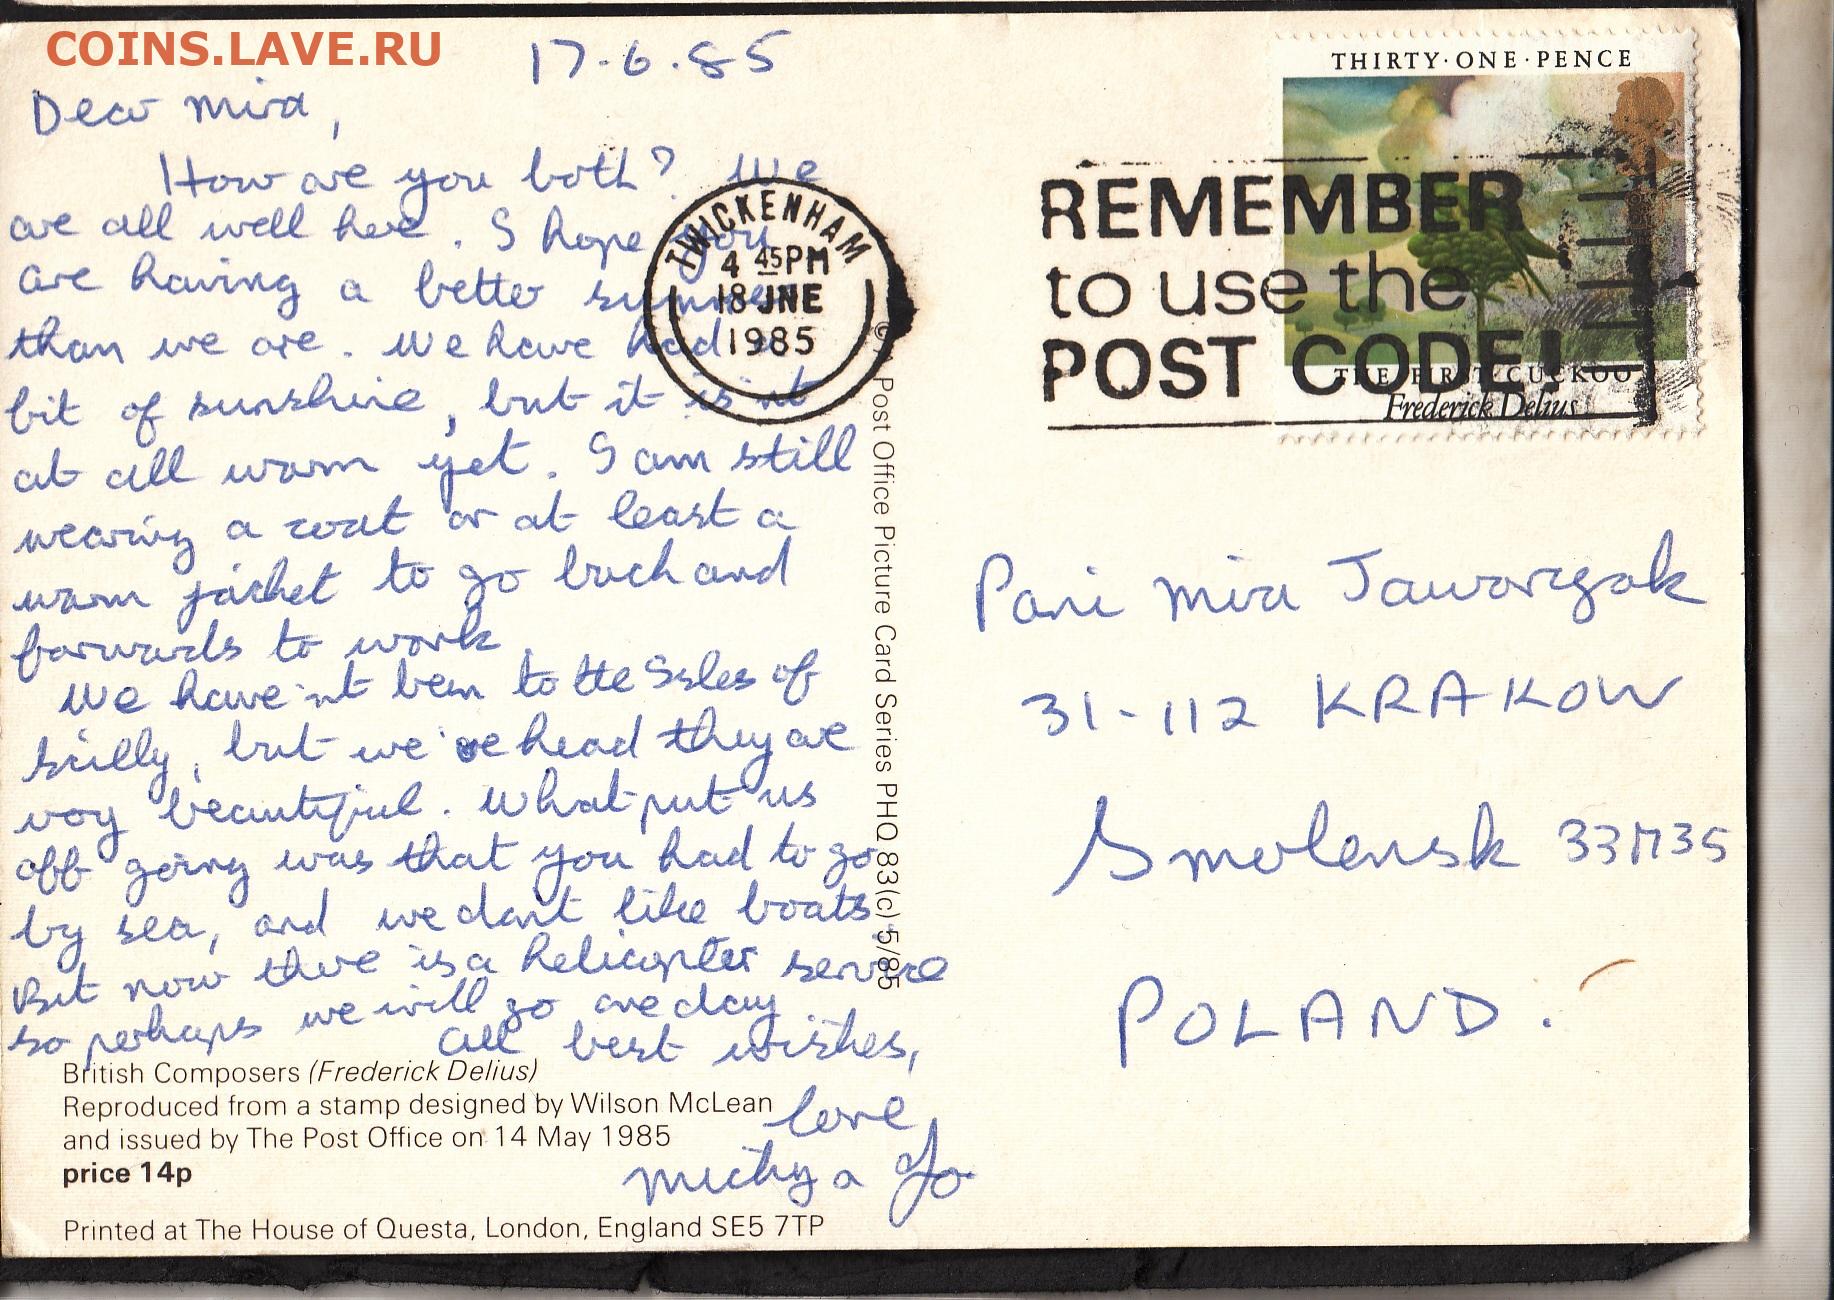 COINS.LAVE.RU
17.6.85
Dear Mira,
How are you both? We
are all well here. I hope you
are having a better summer
than we are. We have had a
bit of sunshine, but it is'nt
at all warm yet. I am still
wearing a coat or at least a
warm jacket to go back and
forwards to work
We have'nt been to the Isles of
Scilly, but we've heard they are
very beautiful. What put us
off going was that you had to go
by sea, and we don't like boats.
But now there is a helicopter service
so perhaps we will go one day
All best wishes,
love
British Composers (Frederick Delius)
Reproduced from a stamp designed by Wilson McLean
and issued by The Post Office on 14 May 1985
price 14p
Printed at The House of Questa, London, England SE5 7TP
© Post Office Picture Card Series PHQ 83(c) 5/85
TWICKENHAM
4 45PM
18 JNE
1985
REMEMBER
to use the
POST CODE!
THIRTY·ONE·PENCE
THE FIRST CUCKOO
Frederick Delius
Pani Mira
31-112 KRAKOW
Smolensk
POLAND.